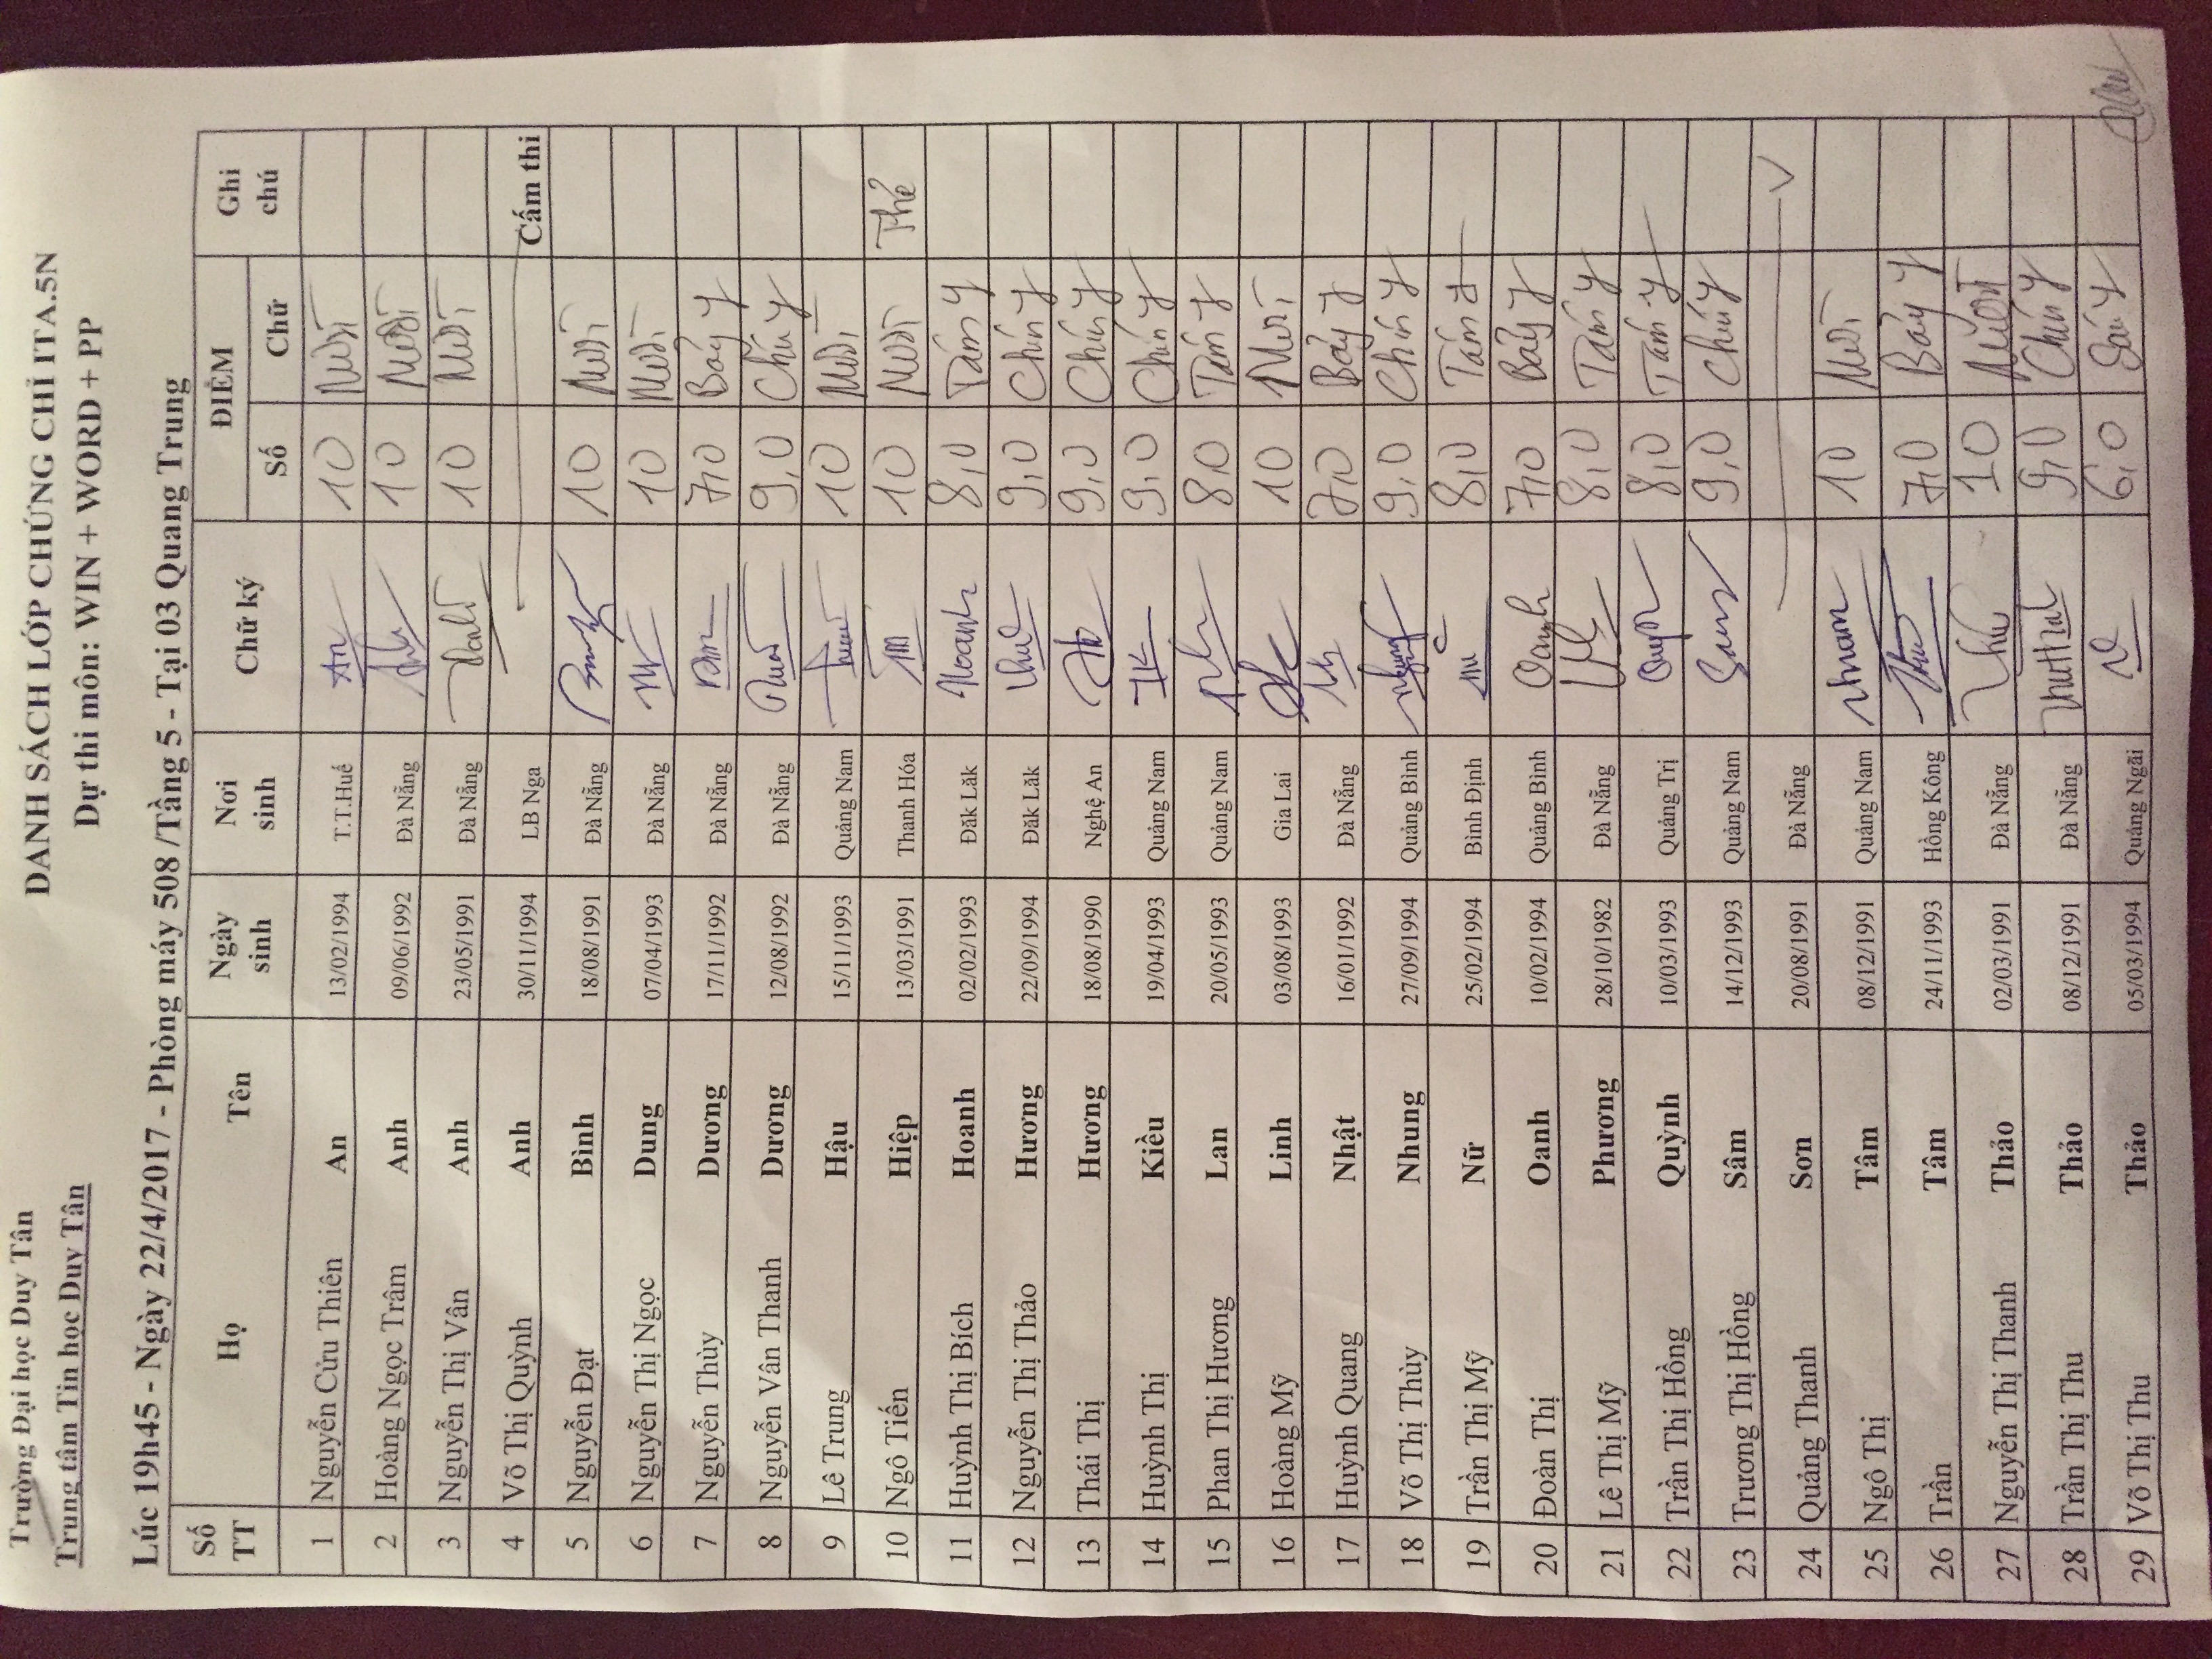 Trường Đại học Duy Tân
Trung tâm Tin học Duy Tân
DANH SÁCH LỚP CHỨNG CHỈ ITA.5N
Dự thi môn: WIN + WORD + PP
Lúc 19h45 - Ngày 22/4/2017 - Phòng máy 508 /Tầng 5 - Tại 03 Quang Trung
Số TT Họ Tên Ngày sinh Nơi sinh Chữ ký ĐIỂM Ghi chú
Số Chữ
1 Nguyễn Cửu Thiên An 13/02/1994 T.T.Huế An 10 Mười
2 Hoàng Ngọc Trâm Anh 09/06/1992 Đà Nẵng 10 Mười
3 Nguyễn Thị Vân Anh 23/05/1991 Đà Nẵng 10 Mười
4 Võ Thị Quỳnh Anh 30/11/1994 LB Nga Cấm thi
5 Nguyễn Đạt Bình 18/08/1991 Đà Nẵng 10 Mười
6 Nguyễn Thị Ngọc Dung 07/04/1993 Đà Nẵng 10 Mười
7 Nguyễn Thùy Dương 17/11/1992 Đà Nẵng 7,0 Bảy
8 Nguyễn Vân Thanh Dương 12/08/1992 Đà Nẵng 9,0 Chín
9 Lê Trung Hậu 15/11/1993 Quảng Nam 10 Mười
10 Ngô Tiến Hiệp 13/03/1991 Thanh Hóa 10 Mười Thẻ
11 Huỳnh Thị Bích Hoanh 02/02/1993 Đăk Lăk Hoanh 8,0 Tám
12 Nguyễn Thị Thảo Hương 22/09/1994 Đăk Lăk 9,0 Chín
13 Thái Thị Hương 18/08/1990 Nghệ An 9,0 Chín
14 Huỳnh Thị Kiều 19/04/1993 Quảng Nam 9,0 Chín
15 Phan Thị Hương Lan 20/05/1993 Quảng Nam 8,0 Tám
16 Hoàng Mỹ Linh 03/08/1993 Gia Lai 10 Mười
17 Huỳnh Quang Nhật 16/01/1992 Đà Nẵng 7,0 Bảy
18 Võ Thị Thùy Nhung 27/09/1994 Quảng Bình Nhung 9,0 Chín
19 Trần Thị Mỹ Nữ 25/02/1994 Bình Định 8,0 Tám
20 Đoàn Thị Oanh 10/02/1994 Quảng Bình Oanh 7,0 Bảy
21 Lê Thị Mỹ Phương 28/10/1982 Đà Nẵng 8,0 Tám
22 Trần Thị Hồng Quỳnh 10/03/1993 Quảng Trị 8,0 Tám
23 Trương Thị Hồng Sâm 14/12/1993 Quảng Nam 9,0 Chín
24 Quảng Thanh Sơn 20/08/1991 Đà Nẵng V
25 Ngô Thị Tâm 08/12/1991 Quảng Nam 10 Mười
26 Trần Tâm 24/11/1993 Hồng Kông 7,0 Bảy
27 Nguyễn Thị Thanh Thảo 02/03/1991 Đà Nẵng 10 Mười
28 Trần Thị Thu Thảo 08/12/1991 Đà Nẵng 9,0 Chín
29 Võ Thị Thu Thảo 05/03/1994 Quảng Ngãi 6,0 Sáu